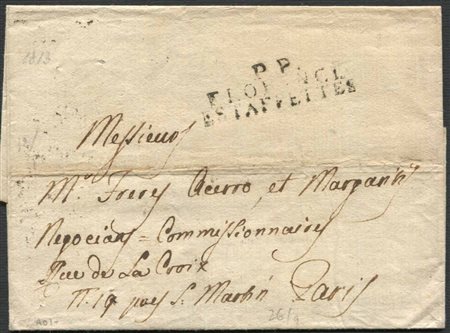 1813
P. P.
FLORENCE
ESTAFFETTES
Messieurs
Mrs. Freres Acerro, et
Negocians = Commissionnaires
Rue de La Croix
N. 19 pres St. Martin Paris